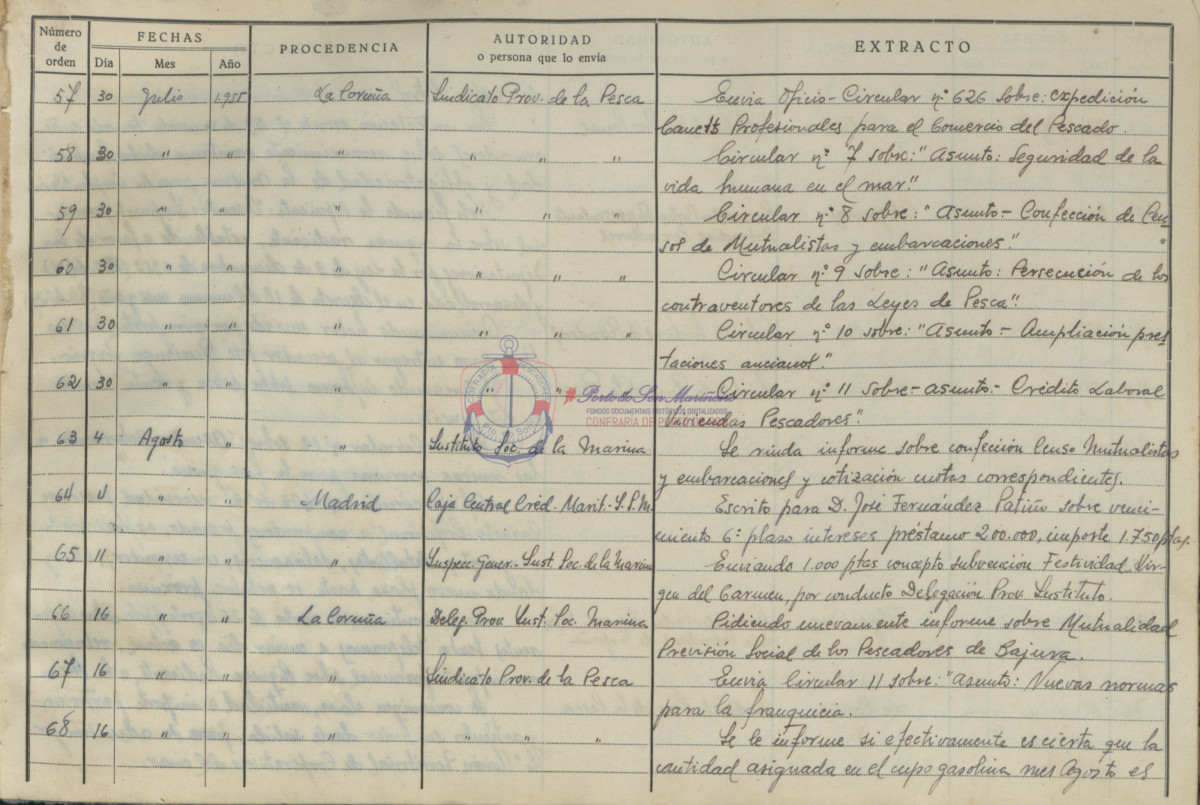 Número de orden FECHAS PROCEDENCIA AUTORIDAD o persona que lo envía EXTRACTO
Día Mes Año
57 30 Julio 1.955 La Coruña Sindicato Prov. de la Pesca Envia Oficio-Circular nº 626 sobre: expedición
Carnets Profesionales para el Comercio del Pescado.
58 30 " " " " " " Circular nº 7 sobre: "Asunto: Seguridad de la
vida humana en el mar."
59 30 " " " " " " Circular nº 8 sobre: "Asunto.- Confección de Cen-
sol de Mutualistas y embarcaciones".
60 30 " " " " " " Circular nº 9 sobre: "Asunto: Persecución de los
contraventores de las Leyes de Pesca".
61 30 " " " " " " Circular nº 10 sobre: "Asunto.- Ampliación pres-
taciones ancianos."
62 30 " " " " " Circular nº 11 sobre.- asunto.- Crédito Laboral
Viviendas Pescadores".
63 4 Agosto " " Instituto Soc. de la Marina Se rinda informe sobre confeción Censo Mutualistas
y embarcaciones y cotización cuotas correspondientes.
64 4 " " Madrid Caja Central Créd. Marít.-S.P.M. Escrito para D. José Fernández Patiño sobre venci-
miento 6º plazo intereses préstamo 200.000, importe 1.750 ptas.
65 11 " " " Inspecc. Gener.- Inst. Soc. de la Marina Enviando 1.000 ptas concepto subvención Festividad Vir-
gen del Carmen, por conducto Delegación Prov. Instituto.
66 16 " " La Coruña Deleg. Prov. Inst. Soc. Marina Pidiendo nuevamente informe sobre Mutualidad
Previsión Social de los Pescadores de Bajura.
67 16 " " " Sindicato Prov. de la Pesca Envia Circular 11 sobre: "Asunto: Nuevas normas
para la franquicia.
68 16 " " " " " " Se le informe si efectivamente es cierta que la
cantidad asignada en el cupo gasolina mes Agosto es
COFRADÍA PESCADORES
Pto. del Son
Porto do Son Mariñeiro
FONDOS DOCUMENTAIS HISTÓRICOS DIGITALIZADOS
CONFRARÍA DE PORTO DO SON